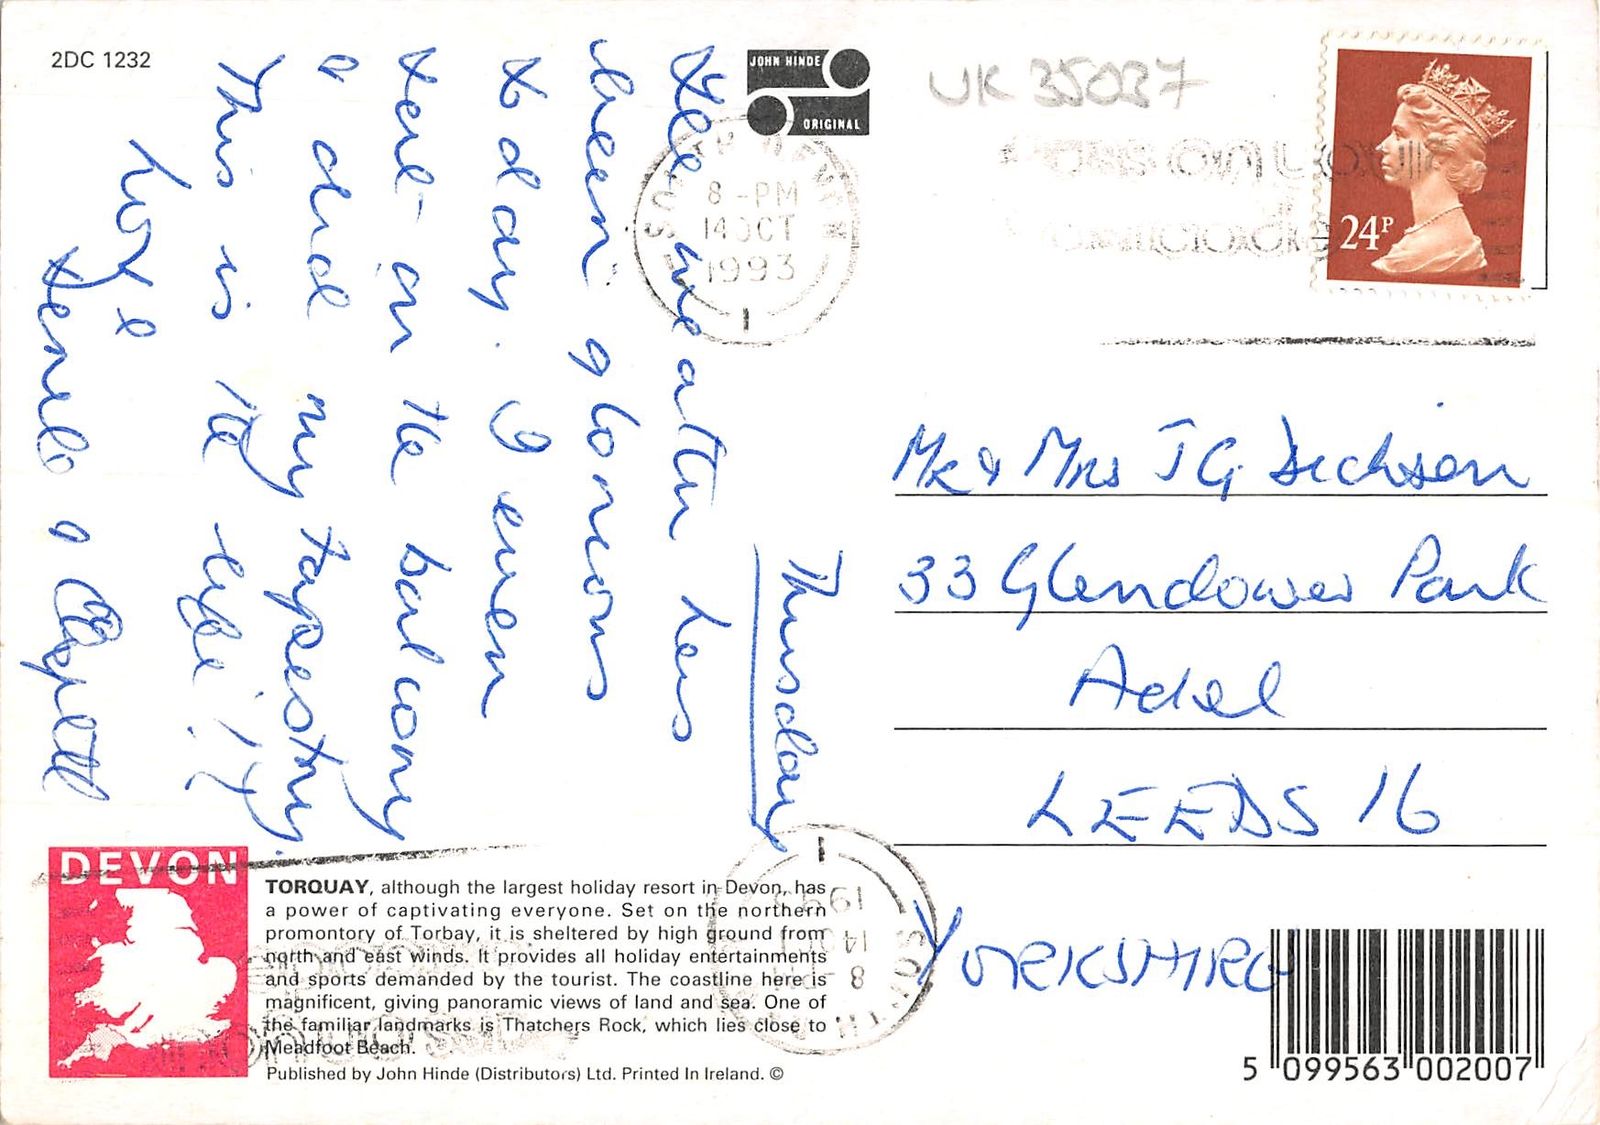 2DC 1232
JOHN HINDE
ORIGINAL
UK 35037
24P
8 - PM
14 OCT
1993
Thursday
The weather has
been glorious
to day. I even
sat on the balcony
& did my tapestry.
This is the life!!
Love
&
Mr & Mrs JG Dickson
33 Glendower Park
Adel
LEEDS 16
YORKSHIRE
DEVON
TORQUAY, although the largest holiday resort in Devon, has
a power of captivating everyone. Set on the northern
promontory of Torbay, it is sheltered by high ground from
north and east winds. It provides all holiday entertainments
and sports demanded by the tourist. The coastline here is
magnificent, giving panoramic views of land and sea. One of
the familiar landmarks is Thatchers Rock, which lies close to
Meadfoot Beach.
Published by John Hinde (Distributors) Ltd. Printed In Ireland. ©
5 099563 002007
1993
14 OCT
8 - PM